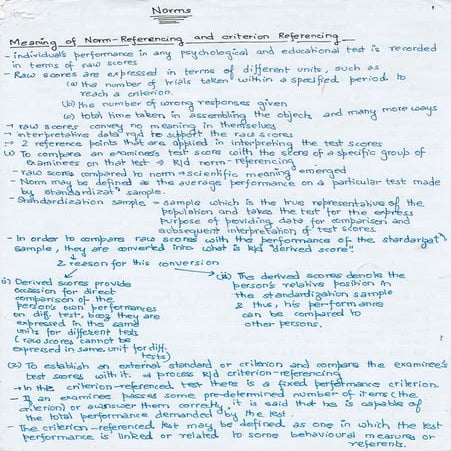 Norms
Meaning of Norm-Referencing and criterion Referencing
- individual's performance in any psychological and educational test is recorded
in terms of raw scores
- Raw scores are expressed in terms of different units, such as
(a) the number of trials taken within a specified period to
reach a criterion.
(b) the number of wrong responses given
(c) total time taken in assembling the objects and many more ways
→ raw scores convey no meaning in themselves
→ interpretative data rqd to support the raw scores
→ 2 reference points that are applied in interpreting the test scores
(1) To compare an examinee's test score with the score of a specific group of
examinees on that test → k/d norm-referencing
- raw score compared to norm → scientific meaning emerged
- Norm may be defined as the average performance on a particular test made
by standardizatⁿ sample.
- Standardization sample - sample which is the true representative of the
population and takes the test for the express
purpose of providing data for comparison and
subsequent interpretation of test scores.
- In order to compare raw scores with the performance of the standardizatⁿ
sample, they are converted into what is k/d "derived score".
2 reason for this conversion
(i) Derived scores provide
occassion for direct
comparison of the
person's own performances
on diff. test, bcoz they are
expressed in the same
units for different tests
(raw scores cannot be
expressed in same unit for diff.
tests)
(ii) The derived scores denote the
person's relative position in
the standardization sample
& thus, his performance
can be compared to
other persons.
(2) To establish an external standard or criterion and compare the examinee's
test scores with it. → process k/d criterion-referencing
→ In this criterion-referenced test there is a fixed performance criterion.
- If an examinee passes some pre-determined number of items (the
criterion) or answer them correctly, it is said that he is capable of
the total performance demanded by the test.
- The criterion-referenced test may be defined as one in which the test
performance is linked or related to some behavioural measures or
referents.